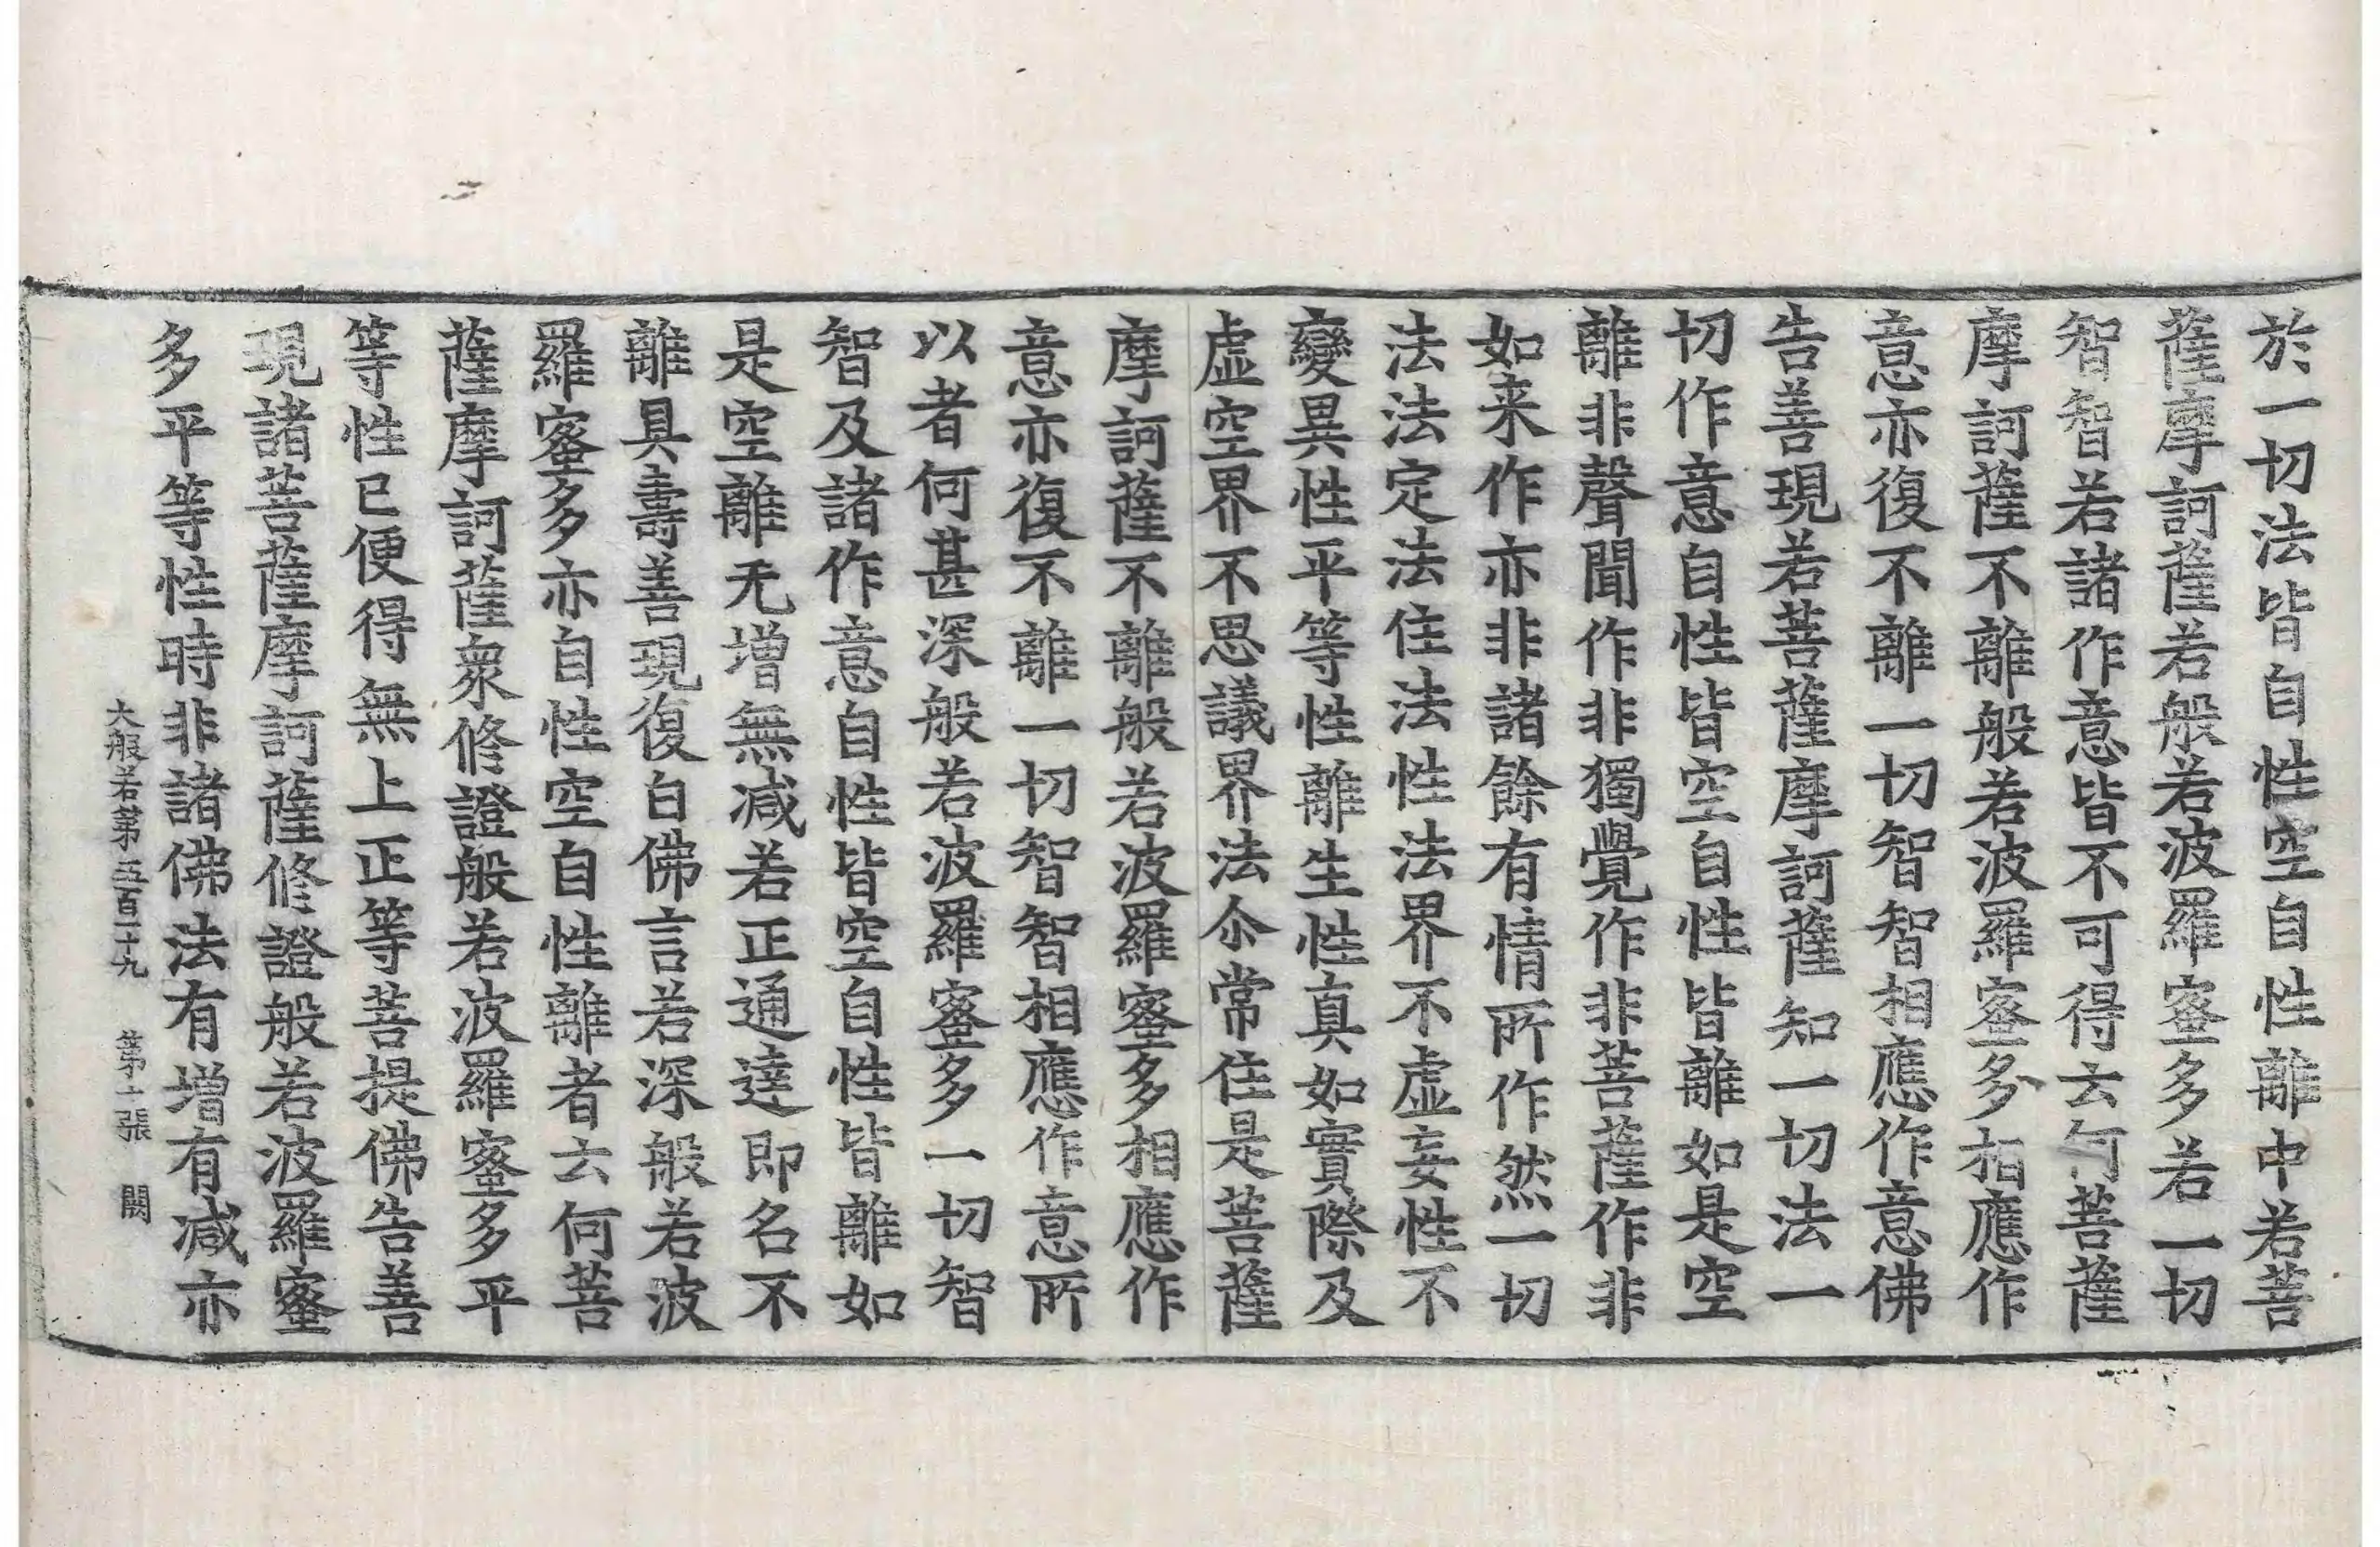 於一切法皆自性空自性離中若菩
薩摩訶薩若般若波羅蜜多若一切
智智若諸作意皆不可得云何菩薩
摩訶薩不離般若波羅蜜多相應作
意亦復不離一切智智相應作意佛
告善現若菩薩摩訶薩知一切法一
切作意自性皆空自性皆離如是空
離非聲聞作非獨覺作非菩薩作非
如来作亦非諸餘有情所作然一切
法法定法住法性法界不虛妄性不
變異性平等性離生性真如實際及
虛空界不思議界法尒常住是菩薩
摩訶薩不離般若波羅蜜多相應作
意亦復不離一切智智相應作意所
以者何甚深般若波羅蜜多一切智
智及諸作意自性皆空自性皆離如
是空離无增無减若正通達即名不
離具壽善現復白佛言若深般若波
羅蜜多亦自性空自性離者云何菩
薩摩訶薩衆修證般若波羅蜜多平
等性已便得無上正等菩提佛告善
現諸菩薩摩訶薩修證般若波羅蜜
多平等性時非諸佛法有增有减亦
大般若第五百二十九 第二張 闕